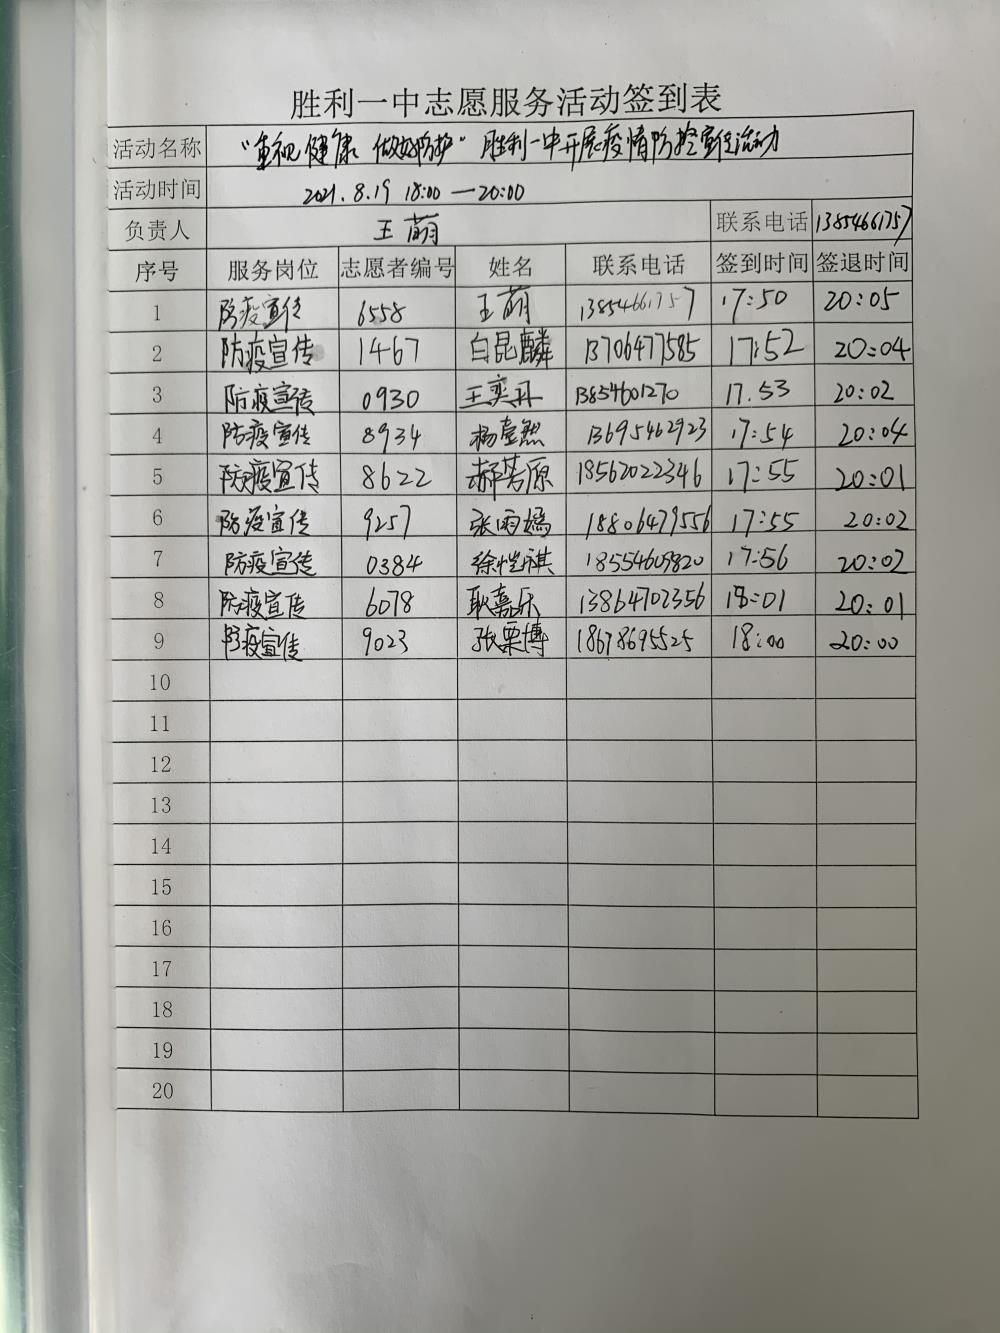 胜利一中志愿服务活动签到表
活动名称 “重视健康 做好防护”胜利一中开展疫情防控宣传活动
活动时间 2021.8.19 18:00—20:00
负责人 王萌 联系电话 13854661757
序号 服务岗位 志愿者编号 姓名 联系电话 签到时间 签退时间
1 防疫宣传 6558 王萌 13854661757 17:50 20:05
2 防疫宣传 1467 白昆麟 13706477585 17:52 20:04
3 防疫宣传 0930 王奕丹 13854601270 17.53 20:02
4 防疫宣传 8934 杨壹然 13695462923 17:54 20:04
5 防疫宣传 8622 郝芳原 18562022346 17:55 20:01
6 防疫宣传 9257 张雨嫣 18806479556 17:55 20:02
7 防疫宣传 0384 徐恺祺 18554609820 17:56 20:02
8 防疫宣传 6078 耿嘉乐 13864702356 18:01 20:01
9 防疫宣传 9023 张栗博 18678695525 18:00 20:00
10
11
12
13
14
15
16
17
18
19
20